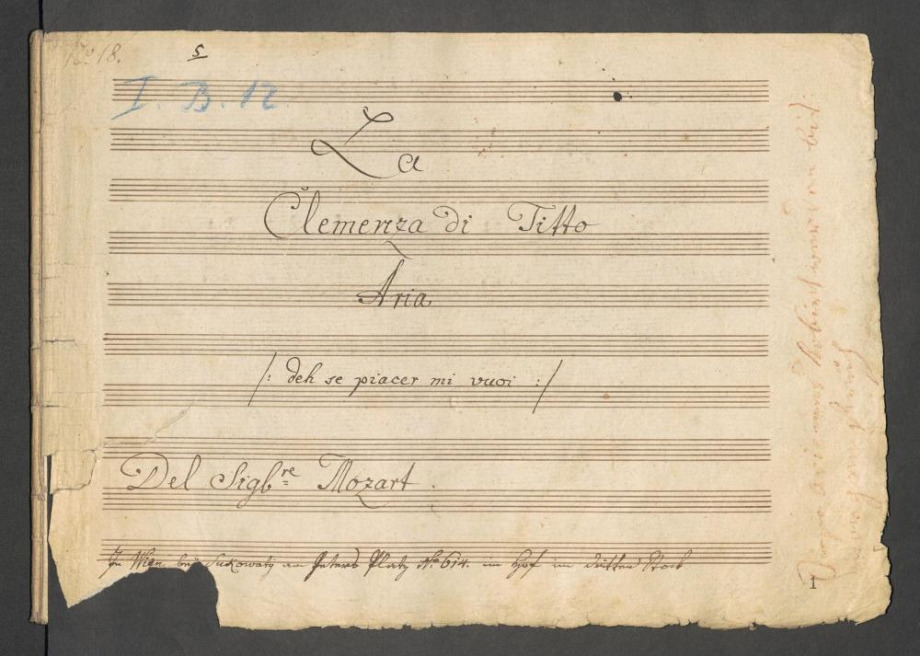 No 18.
5
I. B. 12
La
Clemenza di Titto
Aria
/: deh se piacer mi vuoi :/
Del Sigb:re Mozart.
In Wien bey Sukowaty am Peters Platz No 614. im Hof im dritten Stock
1